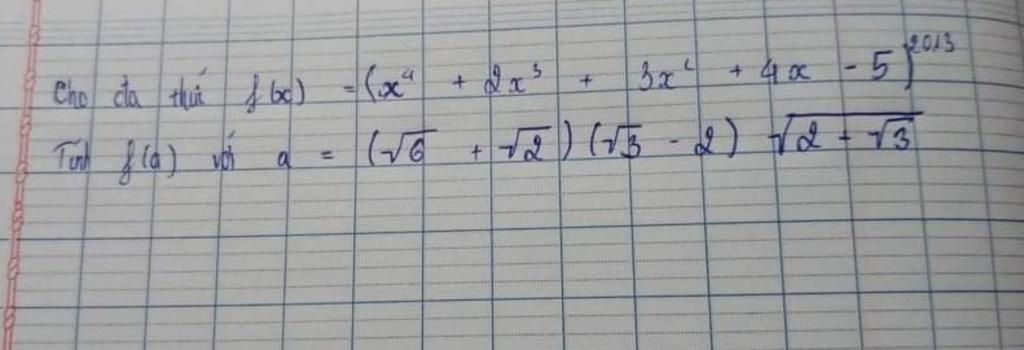 Cho đa thức f(x) = (x⁴ + 2x³ + 3x² + 4x - 5)²⁰¹³
Tính f(a) với a = (√6 + √2)(√3 - 2) √(2 + √3)